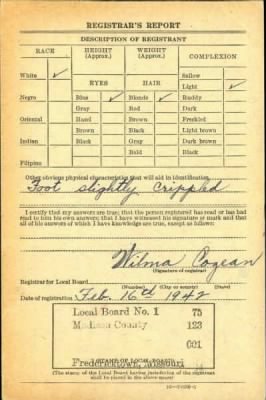 REGISTRAR'S REPORT
DESCRIPTION OF REGISTRANT
RACE HEIGHT (Approx.) WEIGHT (Approx.) COMPLEXION
White ✓ Sallow
EYES HAIR Light ✓
Negro Blue ✓ Blonde ✓ Ruddy
Gray Red Dark
Oriental Hazel Brown Freckled
Brown Black Light brown
Indian Black Gray Dark brown
Bald Black
Filipino
Other obvious physical characteristics that will aid in identification
Foot slightly crippled
I certify that my answers are true; that the person registered has read or has had
read to him his own answers; that I have witnessed his signature or mark and that
all of his answers of which I have knowledge are true, except as follows:
Wilma Cozean
(Signature of registrar)
Registrar for Local Board
(Number) (City or county) (State)
Date of registration Feb. 16th 1942
Local Board No. 1 75
Madison County 123
021
Fredericktown, Missouri
(STAMP OF LOCAL BOARD)
(The stamp of the Local Board having jurisdiction of the registrant
shall be placed in the above space.)